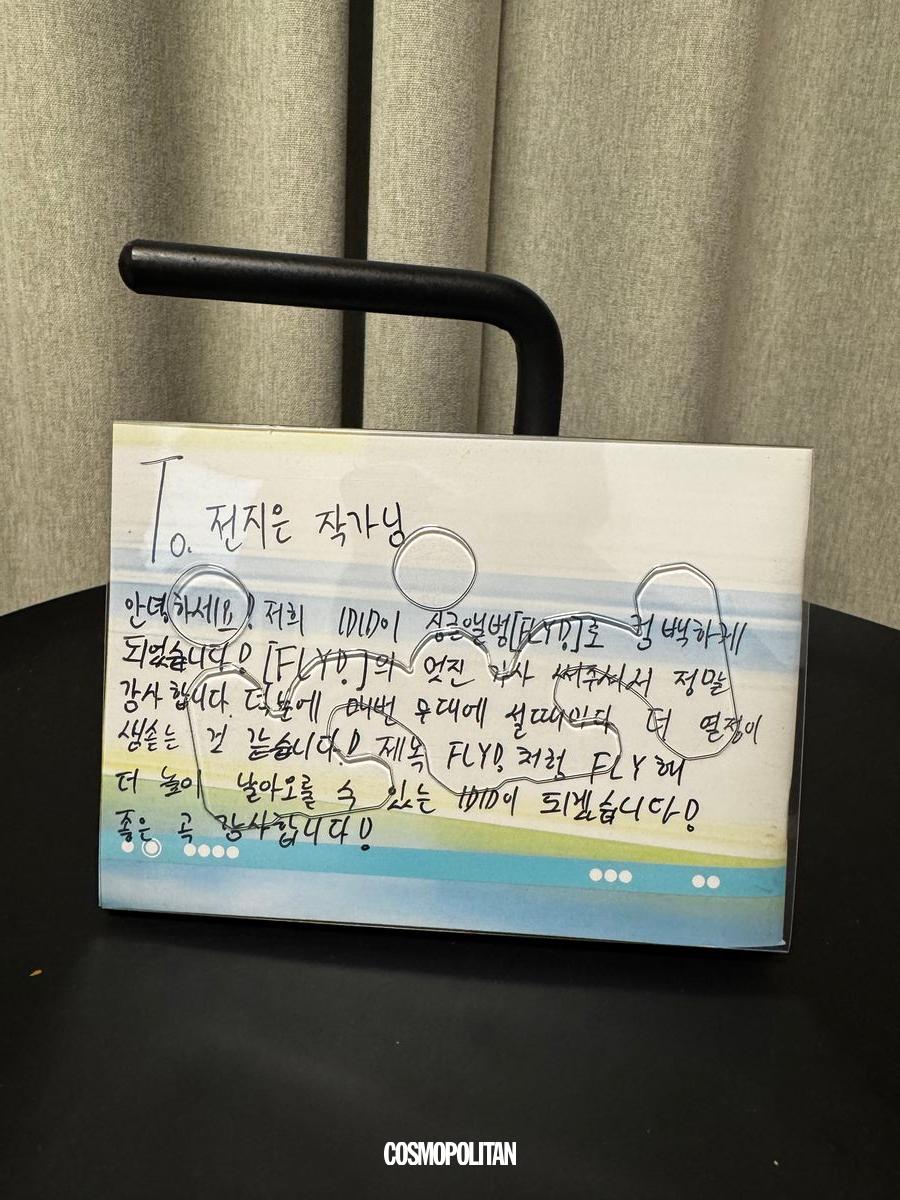 To. 전지은 작가님
안녕하세요! 저희 IDID이 싱글앨범[FLYD!]로 컴백하게
되었습니다! [FLYD!]의 멋진 가사 써주셔서 정말
감사합니다. 덕분에 매번 무대에 설때마다 더 열정이
샘솟는 것 같습니다! 제목 FLYD! 처럼 FLY 해
더 높이 날아오를 수 있는 IDID이 되겠습니다!
좋은 곡 감사합니다!
COSMOPOLITAN